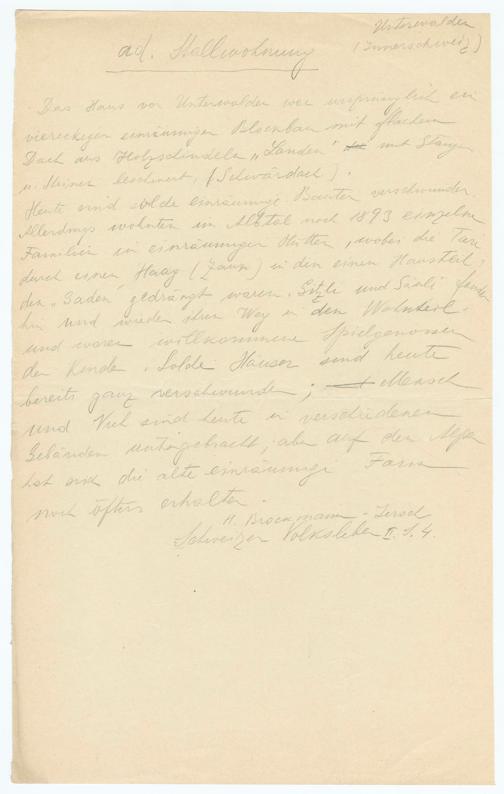 Unterwalden
(Innerschweiz)
ad. Stallwohnung
Das Haus von Unterwalden war ursprünglich ein
viereckiger einräumiger Blockbau mit flachem
Dach aus Holzschindeln „Landen“ mit Stangen
u. Steinen beschwert, (Schwärdach).
Heute sind solche einräumige Bauten verschwunden
Allerdings wohnten im Alptal noch 1893 einzelne
Familien in einräumigen Hütten, wobei die Tiere
durch einen Haag (Zaun) in den einen Hausteil,
den „Gaden“ gedrängt waren. Gitzi und Säuli fanden
hin und wieder ihren Weg in den Wohnteil
und waren willkommene Spielgenossen
der Kinder. Solche Häuser sind heute
bereits ganz verschwunden; Mensch
und Vieh sind heute in verschiedenen
Gebäuden untergebracht; aber auf den Alpen
hat sich die alte einräumige Form
noch öfters erhalten.
H. Brockmann-Jerosch
Schweizer Volksleben II. S. 4.